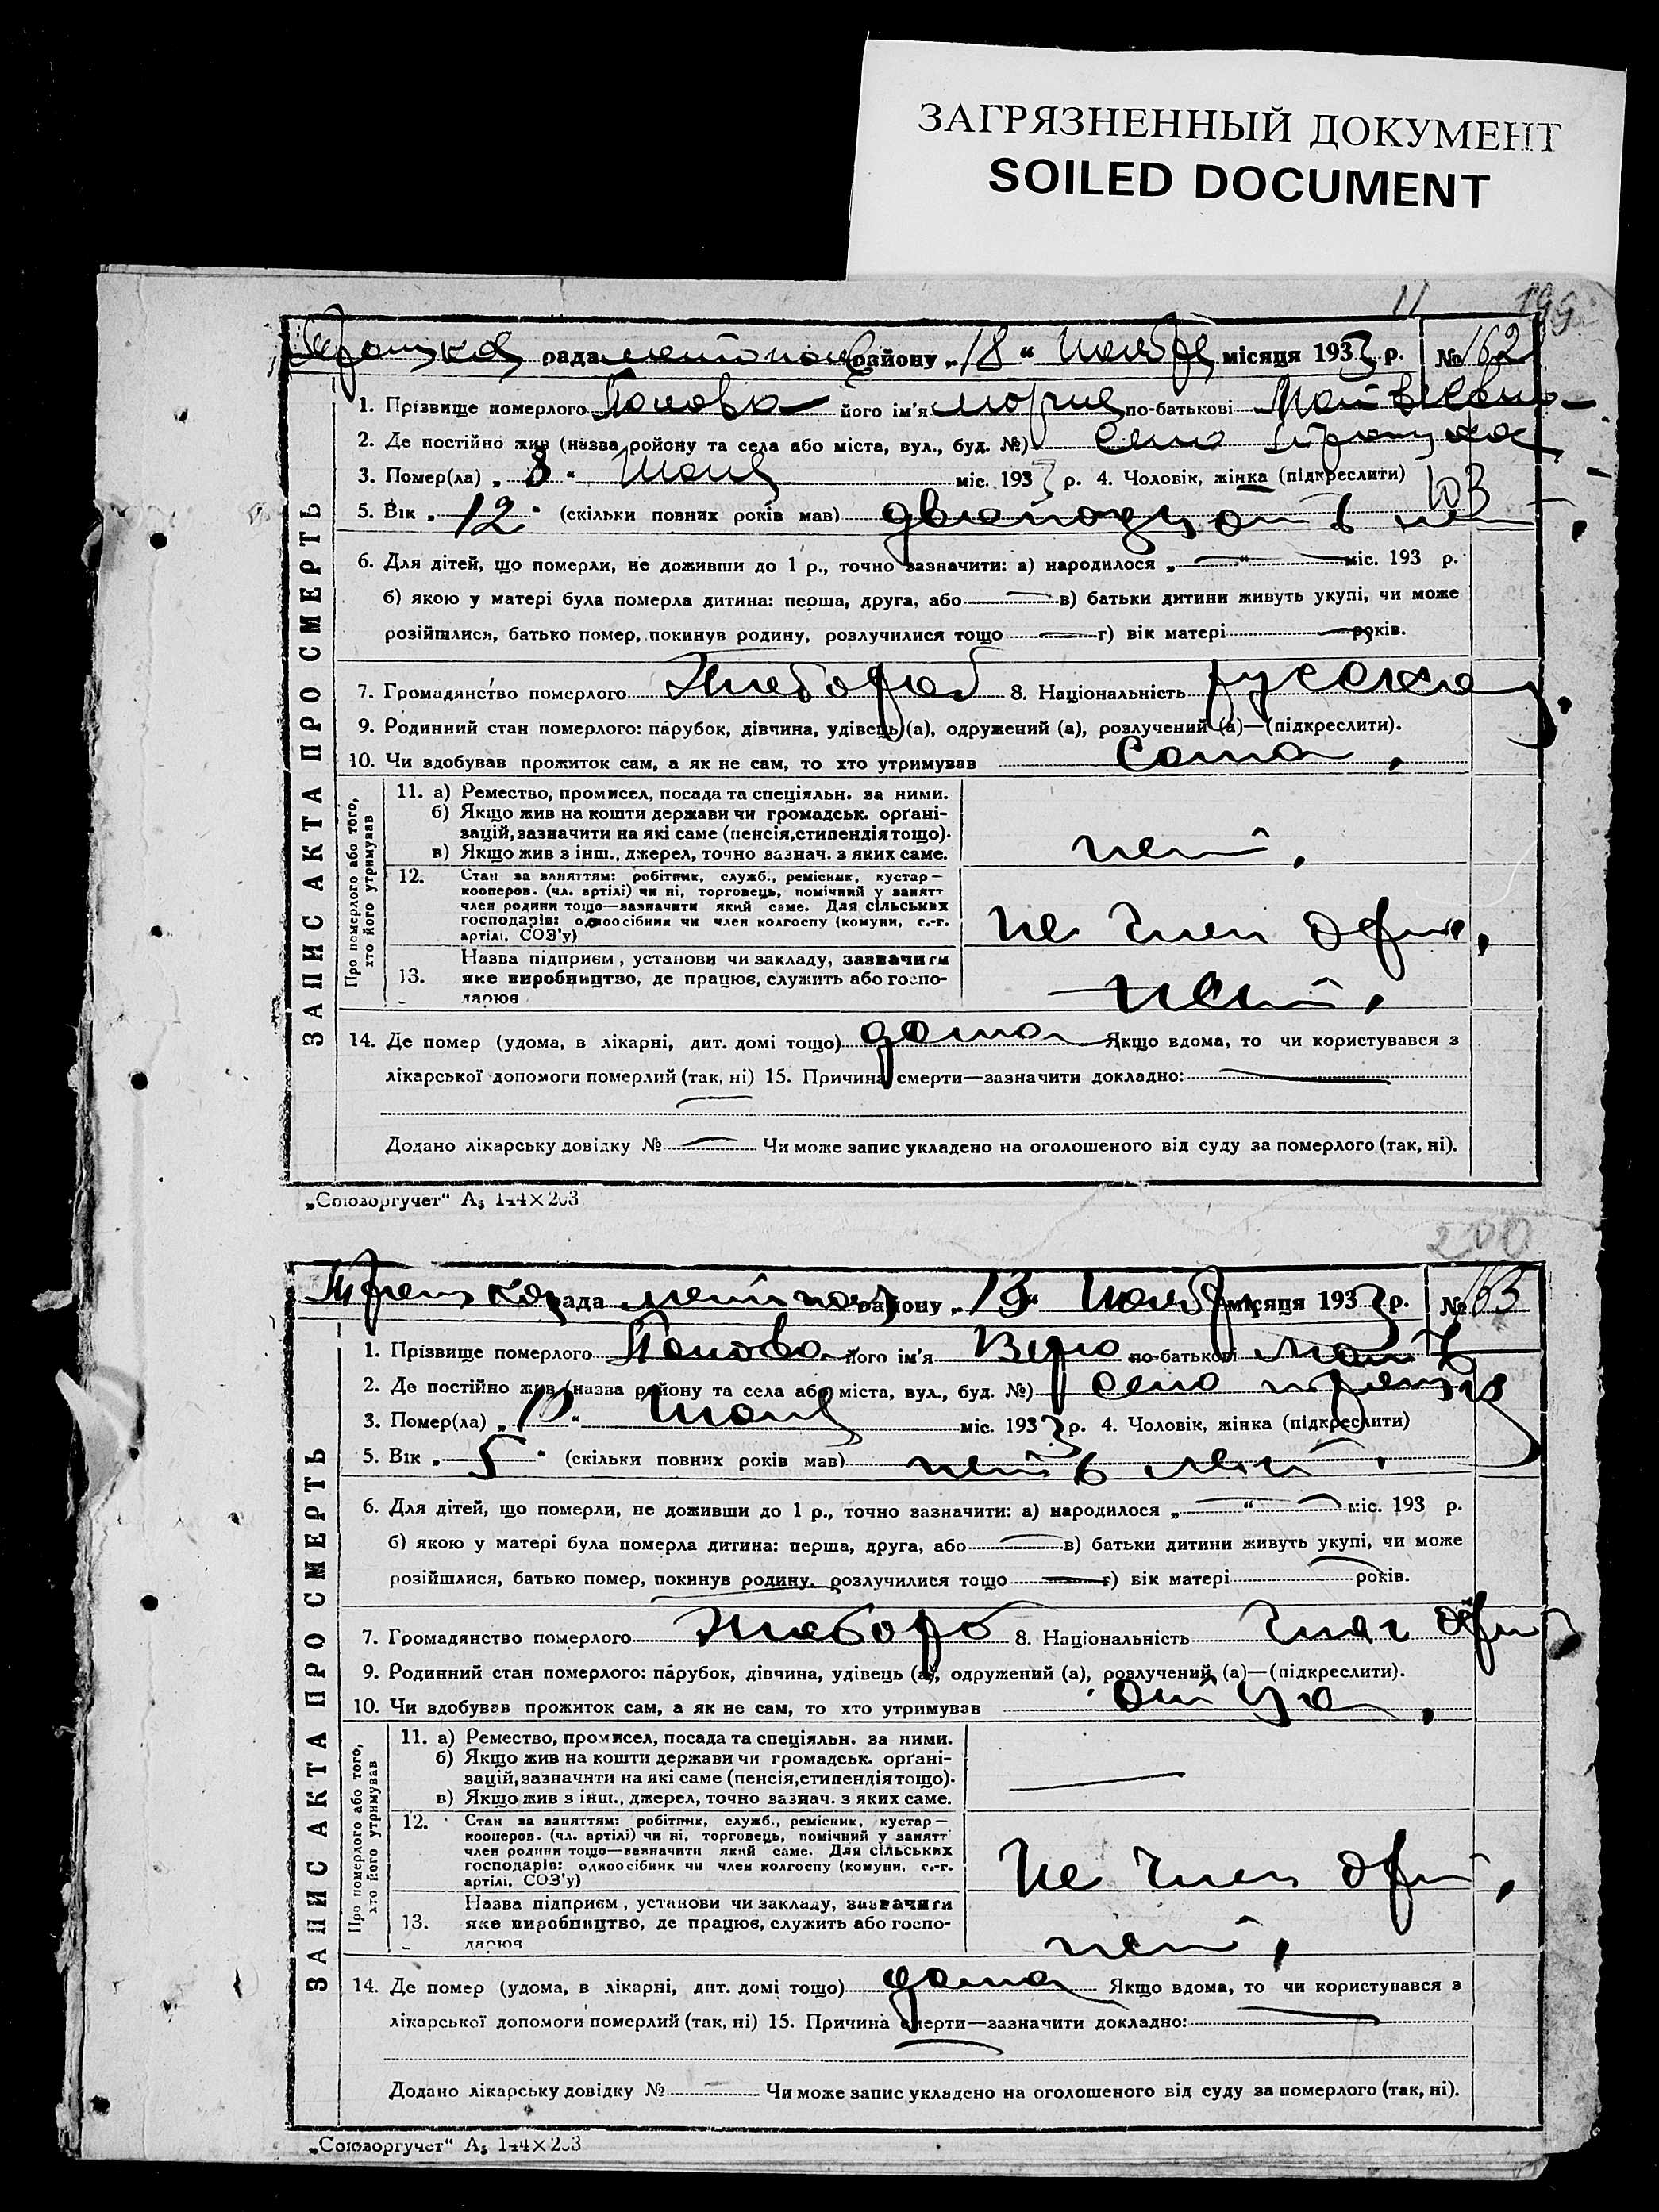 ЗАГРЯЗНЕННЫЙ ДОКУМЕНТ
SOILED DOCUMENT
11 199
рада району „18“ місяця 1933 р. № 162
1. Прізвище померлого Попова його ім'я по-батькові
2. Де постійно жив (назва району та села або міста, вул., буд. №) село
3. Помер(ла) „8“ міс. 1933 р. 4. Чоловік, жінка (підкреслити)
103
5. Вік „12“ (скільки повних років мав) двенадцать лет
6. Для дітей, що померли, не доживши до 1 р., точно зазначити: а) народилося „ “ міс. 193 р.
б) якою у матері була померла дитина: перша, друга, або в) батьки дитини живуть укупі, чи може
розійшлися, батько помер, покинув родину, розлучилися тощо г) вік матері років.
7. Громадянство померлого 8. Національність русская
9. Родинний стан померлого: парубок, дівчина, удівець (а), одружений (а), розлучений (а)—(підкреслити).
10. Чи здобував прожиток сам, а як не сам, то хто утримував сама,
ЗАПИС АКТА ПРО СМЕРТЬ
Про померлого або того, хто його утримував
11. а) Ремество, промисел, посада та спеціяльн. за ними.
б) Якщо жив на кошти держави чи громадськ. орґані-
зацій, зазначити на які саме (пенсія, стипендія тощо).
в) Якщо жив з інш., джерел, точно зазнач. з яких саме.
нет,
12. Стан за заняттям: робітник, служб., ремісник, кустар—
кооперов. (чл. артілі) чи ні, торговець, помічний у занятт
член родини тощо—зазначити який саме. Для сільських
господарів: одноосібник чи член колгоспу (комуни, с.-г.
артілі, СОЗ'у)
не член
Назва підприєм, установи чи закладу, зазначити
13. яке виробництво, де працює, служить або госпо-
дарює
нет,
14. Де помер (удома, в лікарні, дит. домі тощо) дома Якщо вдома, то чи користувався з
лікарської допомоги померлий (так, ні) 15. Причина смерти—зазначити докладно:
Додано лікарську довідку № Чи може запис укладено на оголошеного від суду за померлого (так, ні).
„Союзоргучет“ А₅ 144×203
200
рада району „13“ місяця 1933 р. № 163
1. Прізвище померлого Попова його ім'я Вера по-батькові
2. Де постійно жив (назва району та села або міста, вул., буд. №) село
3. Помер(ла) міс. 1933 р. 4. Чоловік, жінка (підкреслити)
5. Вік „5“ (скільки повних років мав) пять лет.
6. Для дітей, що померли, не доживши до 1 р., точно зазначити: а) народилося „ “ міс. 193 р.
б) якою у матері була померла дитина: перша, друга, або в) батьки дитини живуть укупі, чи може
розійшлися, батько помер, покинув родину, розлучилися тощо г) вік матері років.
7. Громадянство померлого 8. Національність
9. Родинний стан померлого: парубок, дівчина, удівець (а), одружений (а), розлучений (а)—(підкреслити).
10. Чи здобував прожиток сам, а як не сам, то хто утримував отца,
ЗАПИС АКТА ПРО СМЕРТЬ
Про померлого або того, хто його утримував
11. а) Ремество, промисел, посада та спеціяльн. за ними.
б) Якщо жив на кошти держави чи громадськ. орґані-
зацій, зазначити на які саме (пенсія, стипендія тощо).
в) Якщо жив з інш., джерел, точно зазнач. з яких саме.
12. Стан за заняттям: робітник, служб., ремісник, кустар—
кооперов. (чл. артілі) чи ні, торговець, помічний у занятт
член родини тощо—зазначити який саме. Для сільських
господарів: одноосібник чи член колгоспу (комуни, с.-г.
артілі, СОЗ'у)
не член
Назва підприєм, установи чи закладу, зазначити
13. яке виробництво, де працює, служить або госпо-
дарює
нет,
14. Де помер (удома, в лікарні, дит. домі тощо) дома Якщо вдома, то чи користувався з
лікарської допомоги померлий (так, ні) 15. Причина смерти—зазначити докладно:
Додано лікарську довідку № Чи може запис укладено на оголошеного від суду за померлого (так, ні).
„Союзоргучет“ А₅ 144×203